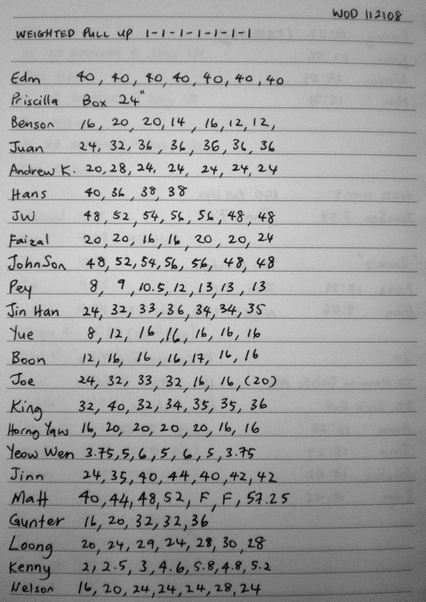 WOD 112108
WEIGHTED PULL UP 1-1-1-1-1-1-1
Edm 40, 40, 40, 40, 40, 40, 40
Priscilla Box 24"
Benson 16, 20, 20, 14, 16, 12, 12,
Juan 24, 32, 36, 36, 36, 36, 36
Andrew K. 20, 28, 24, 24, 24, 24, 24
Hans 40, 36, 38, 38
JW 48, 52, 54, 56, 56, 48, 48
Faizal 20, 20, 16, 16, 20, 20, 24
JohnSon 48, 52, 54, 56, 56, 48, 48
Pey 8, 9, 10.5, 12, 13, 13, 13
Jin Han 24, 32, 33, 36, 34, 34, 35
Yue 8, 12, 16, 16, 16, 16, 16
Boon 12, 16, 16, 16, 17, 16, 16
Joe 24, 32, 33, 32, 16, 16, (20)
King 32, 40, 32, 34, 35, 35, 36
Horng Yaw 16, 20, 20, 20, 20, 16, 16
Yeow Wen 3.75, 5, 6, 5, 6, 5, 3.75
Jinn 24, 35, 40, 44, 40, 42, 42
Matt 40, 44, 48, 52, F, F, 57.25
Gunter 16, 20, 32, 32, 36
Loong 20, 24, 29, 24, 28, 30, 28
Kenny 2, 2.5, 3, 4.6, 5.8, 4.8, 5.2
Nelson 16, 20, 24, 24, 24, 28, 24